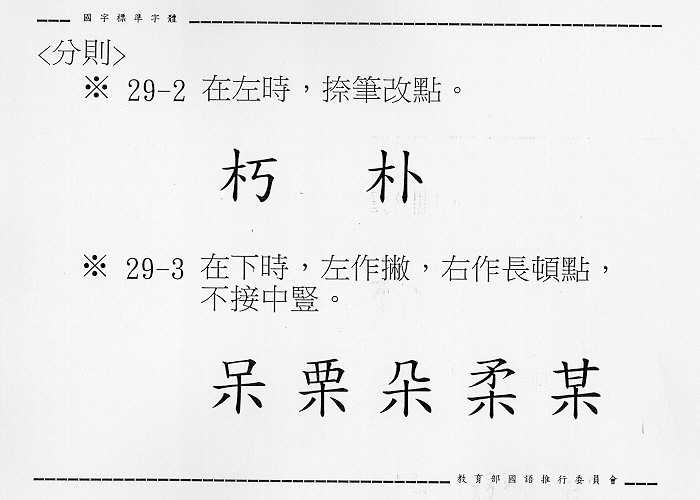 國字標準字體
<分則>
※ 29-2 在左時，捺筆改點。
朽 朴
※ 29-3 在下時，左作撇，右作長頓點，
不接中豎。
呆 栗 朵 柔 某
教育部國語推行委員會